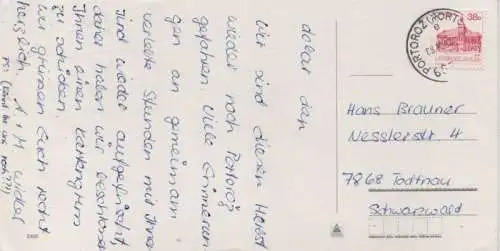 Lieber Hans
Wir sind diesen Herbst
wieder nach Portorož
gefahren. Viele Erinnerun
gen an gemeinsam
verlebte Stunden mit Ihnen
sind wieder aufgefrischt
daher haben wir beschlossen
Ihnen einen Kartengruss
zu schicken.
Wir grüssen Euch recht
herzlich.
PORTOROZ (PORT
38
Hans Brauner
Nesslerstr. 4
7868 Todtnau
Schwarzwald